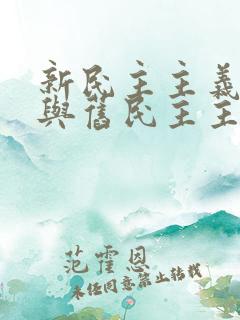 新民主主義
與舊民主主
范霍恩
未经同意禁止转载